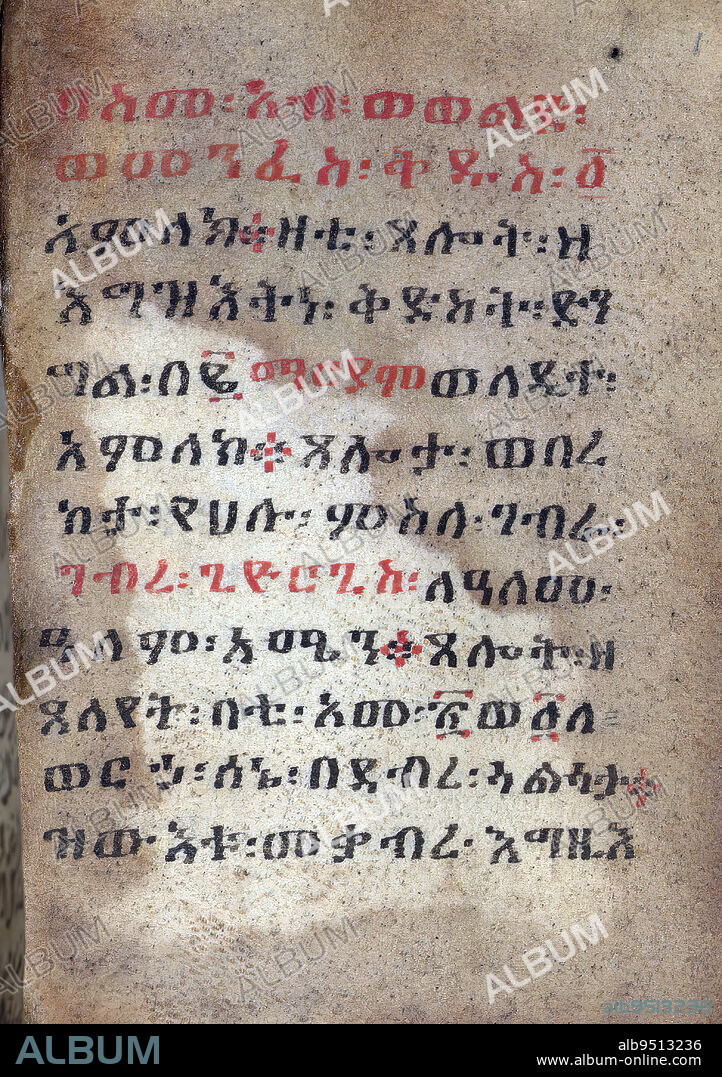 በስመ፡ አብ፡ ወወልድ፡
ወመንፈስ፡ ቅዱስ፡ ፩
አምላክ፨ ዛቲ፡ ጸሎት፡ ዘ
እግዝእትነ፡ ቅድስት፡ ድን
ግል፡ በ፪ ማርያም ወላዲተ፡
አምላክ፨ ጸሎታ፡ ወበረ
ከታ፡ የሀሉ፡ ምስለ፡ ገብራ፡
ገብረ፡ ጊዮርጊስ፡ ለዓለመ፡
ዓለም፡ አሜን፨ ጸሎት፡ ዘ
ጸለየት፡ በቲ፡ አመ፡ ፳ወ፩ለ
ወርኃ፡ ሰኔ፡ በደብረ፡ ጎልጎታ፨
ዝው እቱ፡ መቃብረ፡ እግዚእ
ALBUM
alb9513236
www.album-online.com